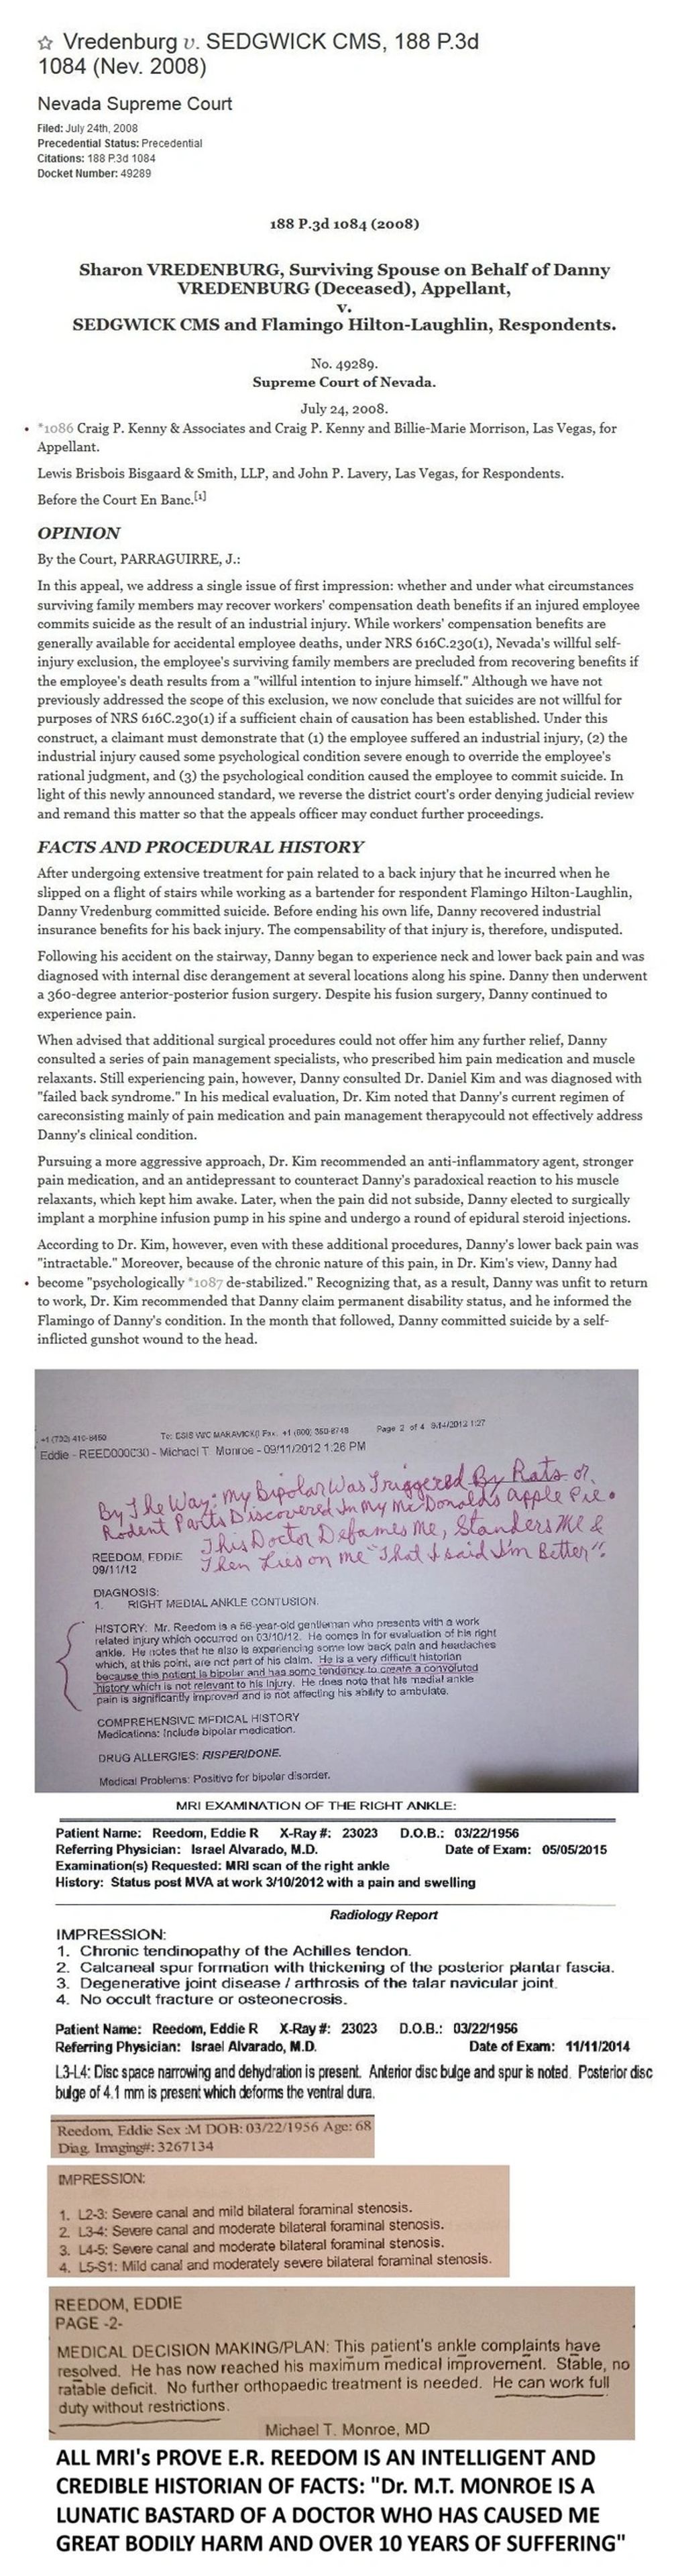 ☆ Vredenburg v. SEDGWICK CMS, 188 P.3d
1084 (Nev. 2008)
Nevada Supreme Court
Filed: July 24th, 2008
Precedential Status: Precedential
Citations: 188 P.3d 1084
Docket Number: 49289
188 P.3d 1084 (2008)
Sharon VREDENBURG, Surviving Spouse on Behalf of Danny
VREDENBURG (Deceased), Appellant,
v.
SEDGWICK CMS and Flamingo Hilton-Laughlin, Respondents.
No. 49289.
Supreme Court of Nevada.
July 24, 2008.
• *1086 Craig P. Kenny & Associates and Craig P. Kenny and Billie-Marie Morrison, Las Vegas, for
Appellant.
Lewis Brisbois Bisgaard & Smith, LLP, and John P. Lavery, Las Vegas, for Respondents.
Before the Court En Banc.[1]
OPINION
By the Court, PARRAGUIRRE, J.:
In this appeal, we address a single issue of first impression: whether and under what circumstances
surviving family members may recover workers' compensation death benefits if an injured employee
commits suicide as the result of an industrial injury. While workers' compensation benefits are
generally available for accidental employee deaths, under NRS 616C.230(1), Nevada's willful self-
injury exclusion, the employee's surviving family members are precluded from recovering benefits if
the employee's death results from a "willful intention to injure himself." Although we have not
previously addressed the scope of this exclusion, we now conclude that suicides are not willful for
purposes of NRS 616C.230(1) if a sufficient chain of causation has been established. Under this
construct, a claimant must demonstrate that (1) the employee suffered an industrial injury, (2) the
industrial injury caused some psychological condition severe enough to override the employee's
rational judgment, and (3) the psychological condition caused the employee to commit suicide. In
light of this newly announced standard, we reverse the district court's order denying judicial review
and remand this matter so that the appeals officer may conduct further proceedings.
FACTS AND PROCEDURAL HISTORY
After undergoing extensive treatment for pain related to a back injury that he incurred when he
slipped on a flight of stairs while working as a bartender for respondent Flamingo Hilton-Laughlin,
Danny Vredenburg committed suicide. Before ending his own life, Danny recovered industrial
insurance benefits for his back injury. The compensability of that injury is, therefore, undisputed.
Following his accident on the stairway, Danny began to experience neck and lower back pain and was
diagnosed with internal disc derangement at several locations along his spine. Danny then underwent
a 360-degree anterior-posterior fusion surgery. Despite his fusion surgery, Danny continued to
experience pain.
When advised that additional surgical procedures could not offer him any further relief, Danny
consulted a series of pain management specialists, who prescribed him pain medication and muscle
relaxants. Still experiencing pain, however, Danny consulted Dr. Daniel Kim and was diagnosed with
"failed back syndrome." In his medical evaluation, Dr. Kim noted that Danny's current regimen of
careconsisting mainly of pain medication and pain management therapycould not effectively address
Danny's clinical condition.
Pursuing a more aggressive approach, Dr. Kim recommended an anti-inflammatory agent, stronger
pain medication, and an antidepressant to counteract Danny's paradoxical reaction to his muscle
relaxants, which kept him awake. Later, when the pain did not subside, Danny elected to surgically
implant a morphine infusion pump in his spine and undergo a round of epidural steroid injections.
According to Dr. Kim, however, even with these additional procedures, Danny's lower back pain was
"intractable." Moreover, because of the chronic nature of this pain, in Dr. Kim's view, Danny had
• become "psychologically *1087 de-stabilized." Recognizing that, as a result, Danny was unfit to return
to work, Dr. Kim recommended that Danny claim permanent disability status, and he informed the
Flamingo of Danny's condition. In the month that followed, Danny committed suicide by a self-
inflicted gunshot wound to the head.
+1 (732) 410-8450 To: ESIS W/C MARAVICK() Fax: +1 (800) 350-8748 Page 2 of 4 9/14/2012 1:27
Eddie - REED000C30 - Michael T Monroe - 09/11/2012 1:26 PM
By The Way: My Bipolar Was Triggered By Rats or
Rodent Parts Discovered In My McDonalds apple Pie.
This Doctor Defames Me, Slanders Me &
Then Lies on me "That I said I'm Better".
REEDOM, EDDIE
09/11/12
DIAGNOSIS:
1. RIGHT MEDIAL ANKLE CONTUSION.
HISTORY: Mr. Reedom is a 56-year-old gentleman who presents with a work
related injury which occurred on 03/10/12. He comes in for evaluation of his right
ankle. He notes that he also is experiencing some low back pain and headaches
which, at this point, are not part of his claim. He is a very difficult historian
because this patient is bipolar and has some tendency to create a convoluted
history which is not relevant to his injury. He does note that his medial ankle
pain is significantly improved and is not affecting his ability to ambulate.
COMPREHENSIVE MEDICAL HISTORY
Medications: Include bipolar medication.
DRUG ALLERGIES: RISPERIDONE.
Medical Problems: Positive for bipolar disorder.
MRI EXAMINATION OF THE RIGHT ANKLE:
Patient Name: Reedom, Eddie R X-Ray #: 23023 D.O.B.: 03/22/1956
Referring Physician: Israel Alvarado, M.D. Date of Exam: 05/05/2015
Examination(s) Requested: MRI scan of the right ankle
History: Status post MVA at work 3/10/2012 with a pain and swelling
Radiology Report
IMPRESSION:
1. Chronic tendinopathy of the Achilles tendon.
2. Calcaneal spur formation with thickening of the posterior plantar fascia.
3. Degenerative joint disease / arthrosis of the talar navicular joint.
4. No occult fracture or osteonecrosis.
Patient Name: Reedom, Eddie R X-Ray #: 23023 D.O.B.: 03/22/1956
Referring Physician: Israel Alvarado, M.D. Date of Exam: 11/11/2014
L3-L4: Disc space narrowing and dehydration is present. Anterior disc bulge and spur is noted. Posterior disc
bulge of 4.1 mm is present which deforms the ventral dura.
Reedom, Eddie Sex :M DOB: 03/22/1956 Age: 68
Diag. Imaging#: 3267134
IMPRESSION:
1. L2-3: Severe canal and mild bilateral foraminal stenosis.
2. L3-4: Severe canal and moderate bilateral foraminal stenosis.
3. L4-5: Severe canal and moderate bilateral foraminal stenosis.
4. L5-S1: Mild canal and moderately severe bilateral foraminal stenosis.
REEDOM, EDDIE
PAGE -2-
MEDICAL DECISION MAKING/PLAN: This patient's ankle complaints have
resolved. He has now reached his maximum medical improvement. Stable, no
ratable deficit. No further orthopaedic treatment is needed. He can work full
duty without restrictions.
Michael T. Monroe, MD
ALL MRI's PROVE E.R. REEDOM IS AN INTELLIGENT AND
CREDIBLE HISTORIAN OF FACTS: "Dr. M.T. MONROE IS A
LUNATIC BASTARD OF A DOCTOR WHO HAS CAUSED ME
GREAT BODILY HARM AND OVER 10 YEARS OF SUFFERING"